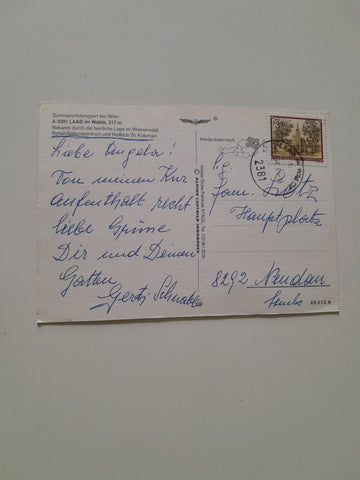 Sommererholungsort bei Wien
A-2381 LAAB im Walde, 317 m
Bekannt durch die herrliche Lage im Wienerwald
Rehabilitationszentrum und Reitklub St. Koloman
Liebe Angela!
Von meinem Kur
aufenthalt recht
liebe Grüsse
Dir und Deinem
Gatten
Gerti
Niederösterreich
2381
Fam.
Hauptplatz
8292 Neudau
ALPINE LUFTBILD INNSBRUCK
69 213 A